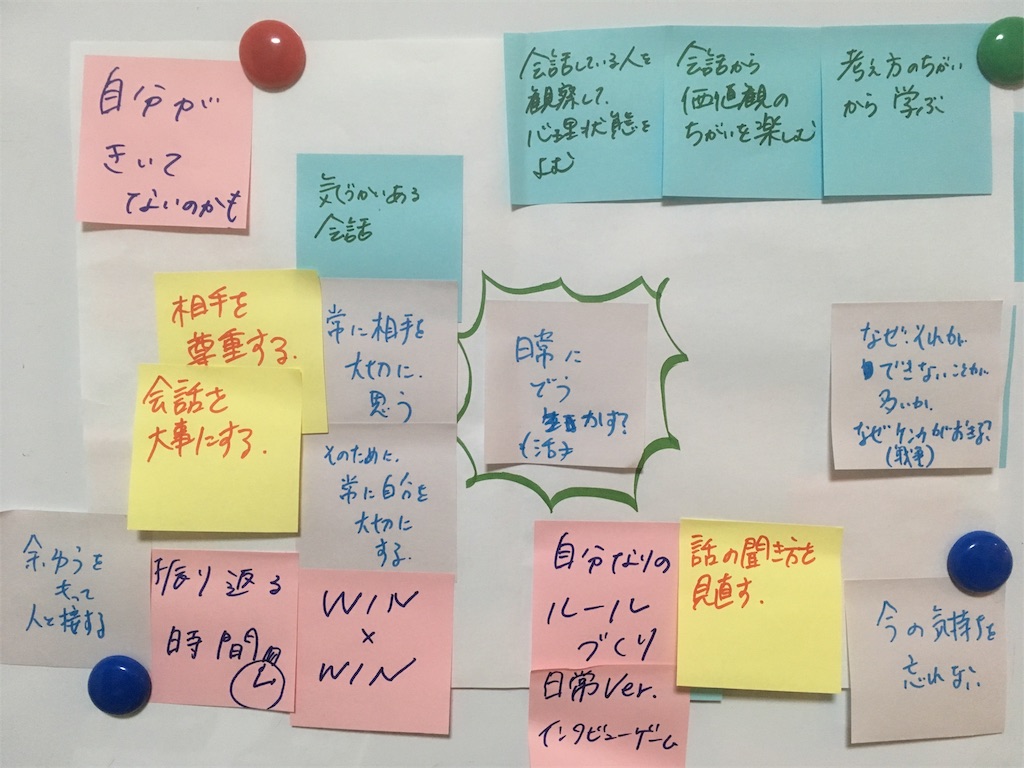 自分が
きいて
ないのかも
会話している人を
観察して、
心理状態を
よむ
会話から
価値観の
ちがいを楽しむ
考え方のちがい
から 学ぶ
気づかいある
会話
相手を
尊重する.
会話を
大事にする.
常に相手を
大切に.
思う
そのために、
常に自分を
大切に
する.
日常に
どう
かす?
活き
なぜ、それが
できないことが
多いか.
なぜケンカがおきる?
(戦争)
余ゆうを
もって
人と接する
振り返る
時間
WIN
×
WIN
自分なりの
ルール
づくり
日常 Ver.
インタビューゲーム
話の聞き方を
見直す.
今の気持ちを
忘れない